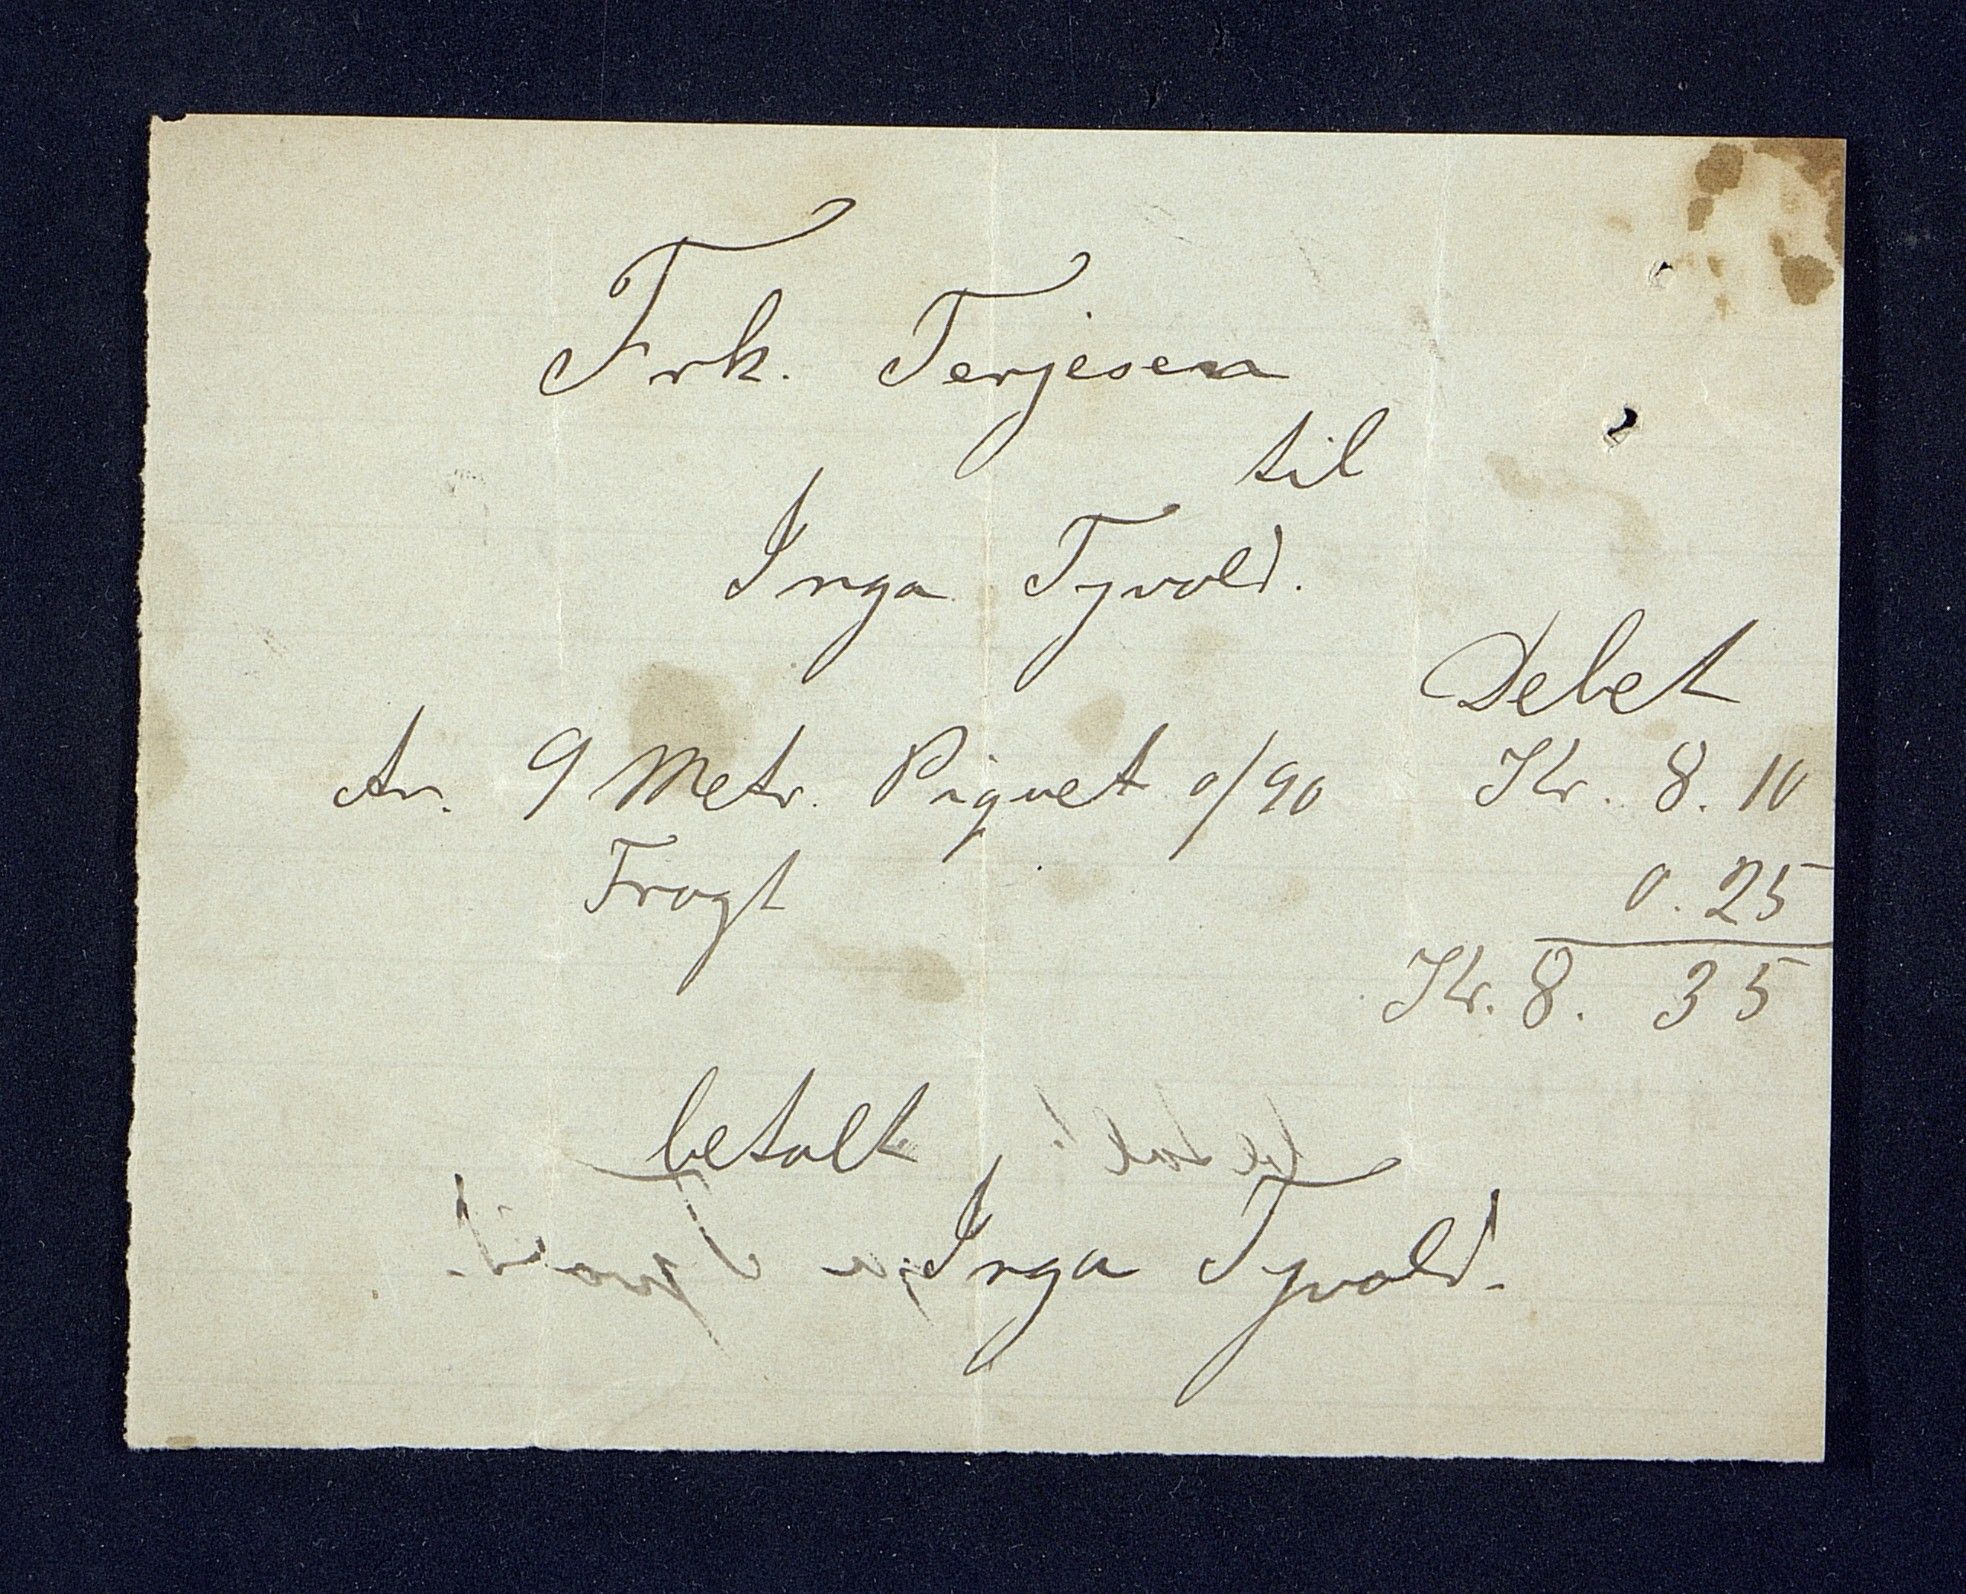 Frk. Terjesen
til
Inga Tyvold.
Debet
An. 9 Metr. Piquet 0/90 Kr. 8. 10
Fragt 0. 25
Kr. 8. 35
betalt
Inga Tyvold.